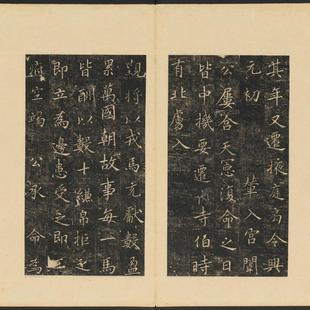 其年又遷掖庭局令興
元初 輦入宮闈
公屢含天憲復命之日
皆中機要遷 寺伯時
有北虜入
覲將以戎馬充獻數盈
累萬國朝故事每一馬
皆酬以數十縑帛拒之
即立為邊患受之即王
府空竭 公承命為